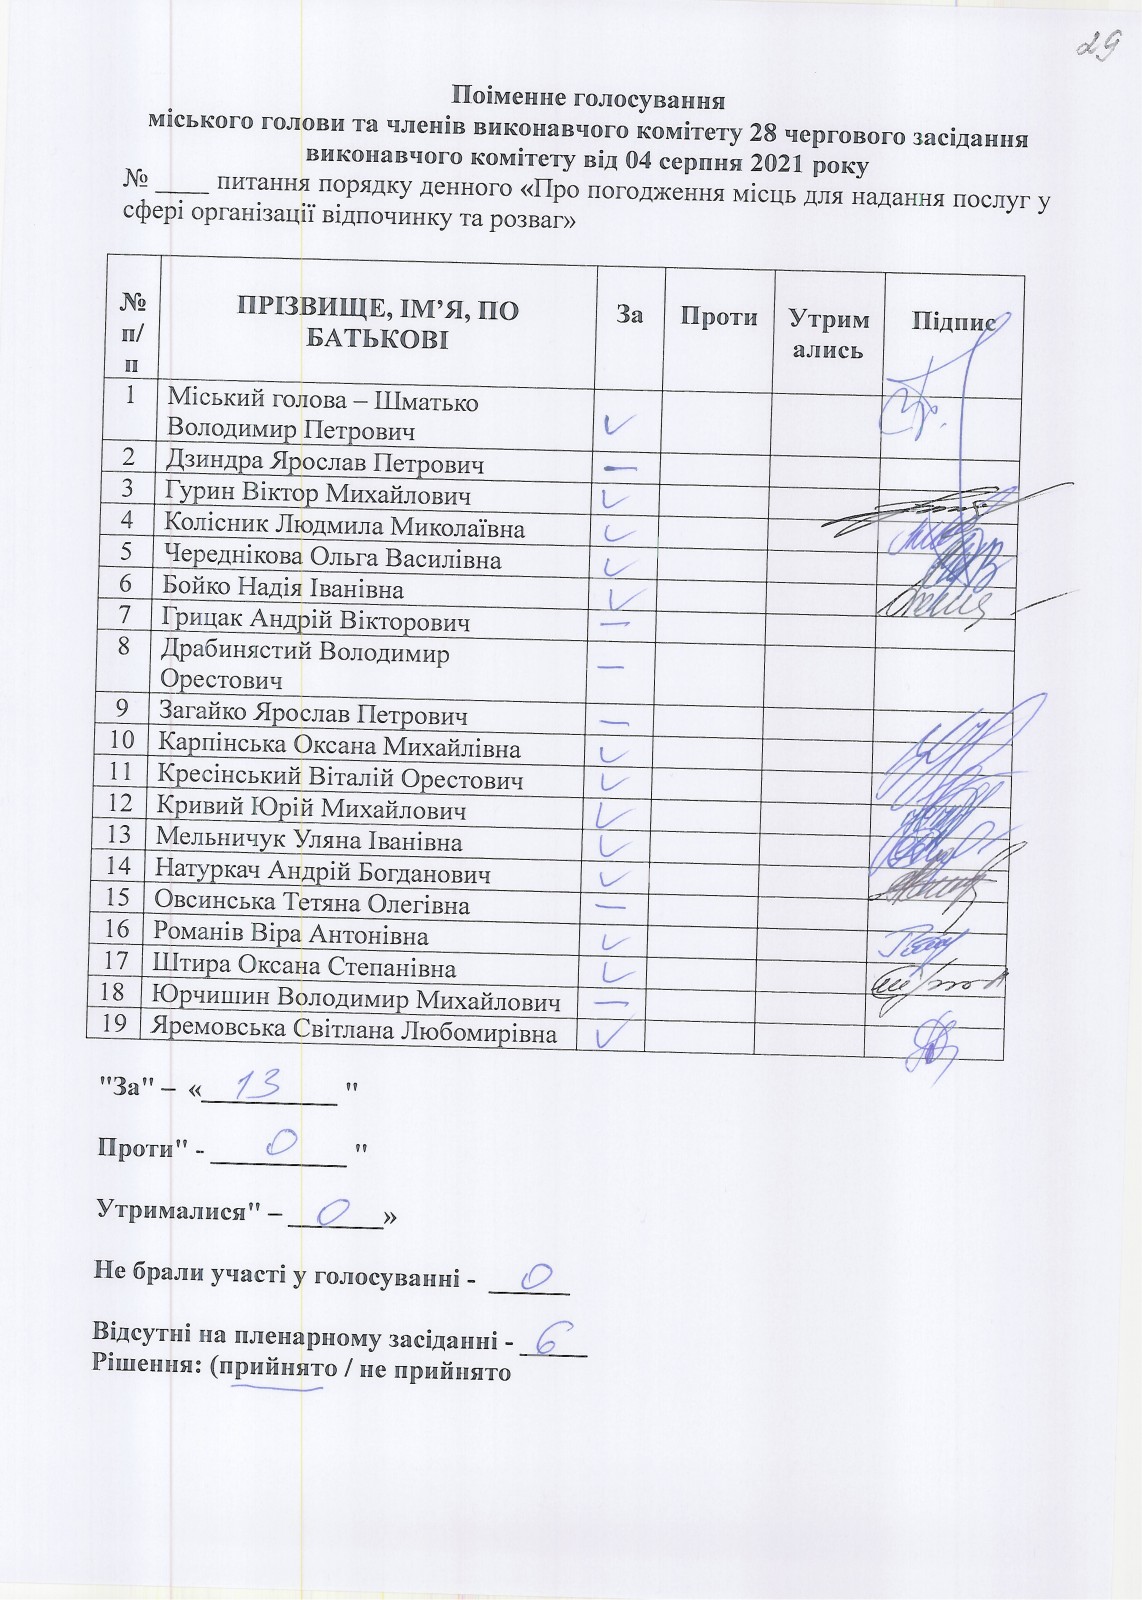 29
Поіменне голосування
міського голови та членів виконавчого комітету 28 чергового засідання
виконавчого комітету від 04 серпня 2021 року
№ ____ питання порядку денного «Про погодження місць для надання послуг у
сфері організації відпочинку та розваг»
№ п/п ПРІЗВИЩЕ, ІМ’Я, ПО БАТЬКОВІ За Проти Утримались Підпис
1 Міський голова – Шматько
Володимир Петрович ✓
2 Дзиндра Ярослав Петрович —
3 Гурин Віктор Михайлович ✓
4 Колісник Людмила Миколаївна ✓
5 Череднікова Ольга Василівна ✓
6 Бойко Надія Іванівна ✓
7 Грицак Андрій Вікторович —
8 Драбинястий Володимир
Орестович —
9 Загайко Ярослав Петрович —
10 Карпінська Оксана Михайлівна ✓
11 Кресінський Віталій Орестович ✓
12 Кривий Юрій Михайлович ✓
13 Мельничук Уляна Іванівна ✓
14 Натуркач Андрій Богданович ✓
15 Овсинська Тетяна Олегівна —
16 Романів Віра Антонівна ✓
17 Штира Оксана Степанівна ✓
18 Юрчишин Володимир Михайлович —
19 Яремовська Світлана Любомирівна ✓
"За" – «___13___ "
Проти" - ___0___ "
Утрималися" – ___0___»
Не брали участі у голосуванні - ___0___
Відсутні на пленарному засіданні - ___6___
Рішення: (прийнято / не прийнято